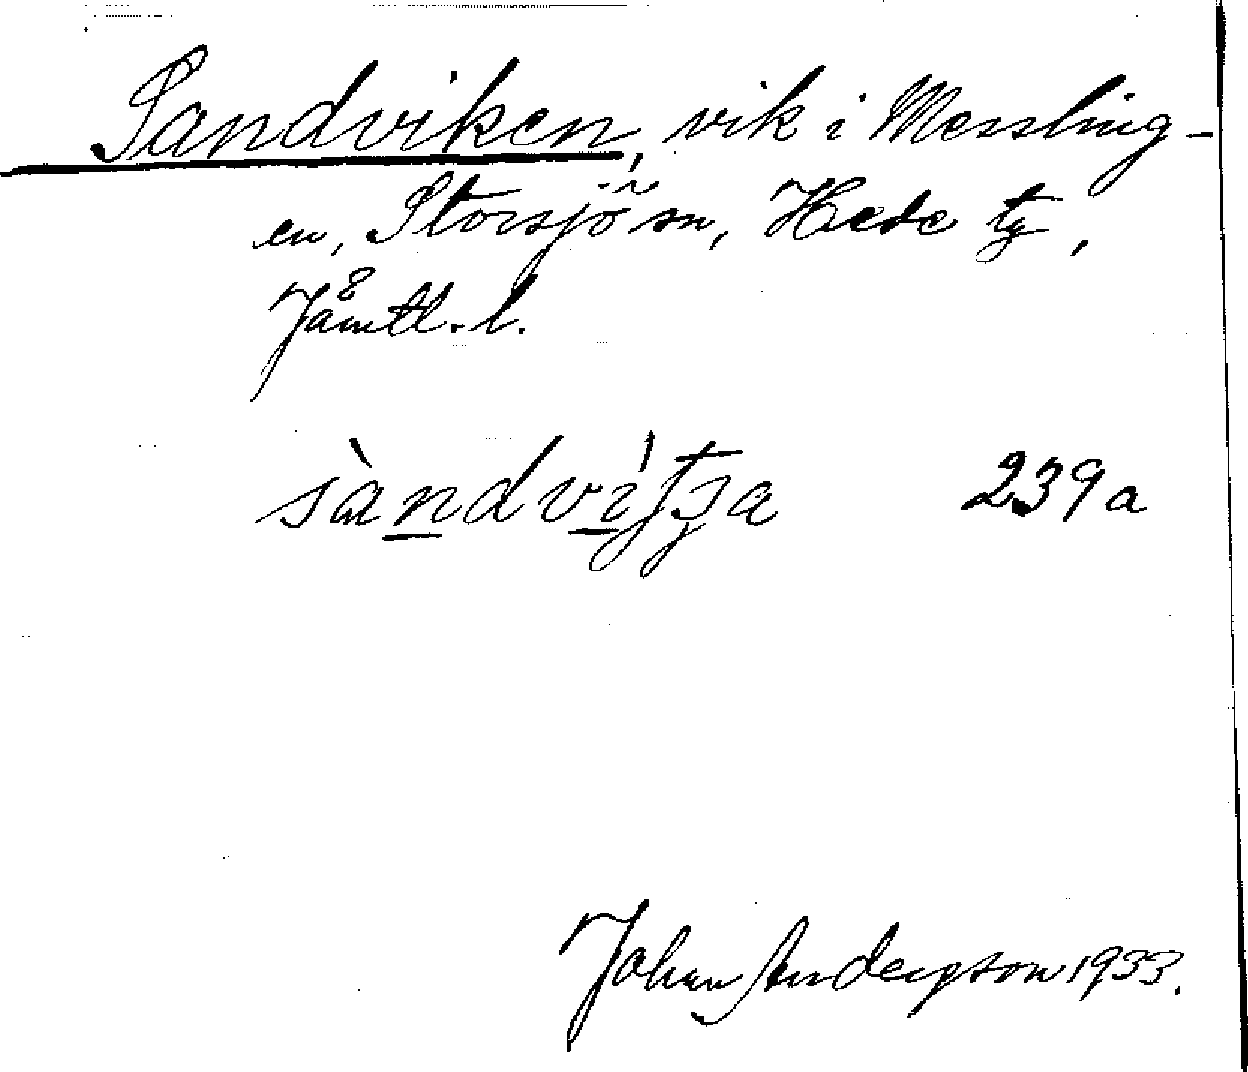 Sandviken, vik i Messling-
en, Storsjö sn, Hede tg,
Jämtl. l.
sàndvìʃʒa 239a
Johan Anderson 1933.